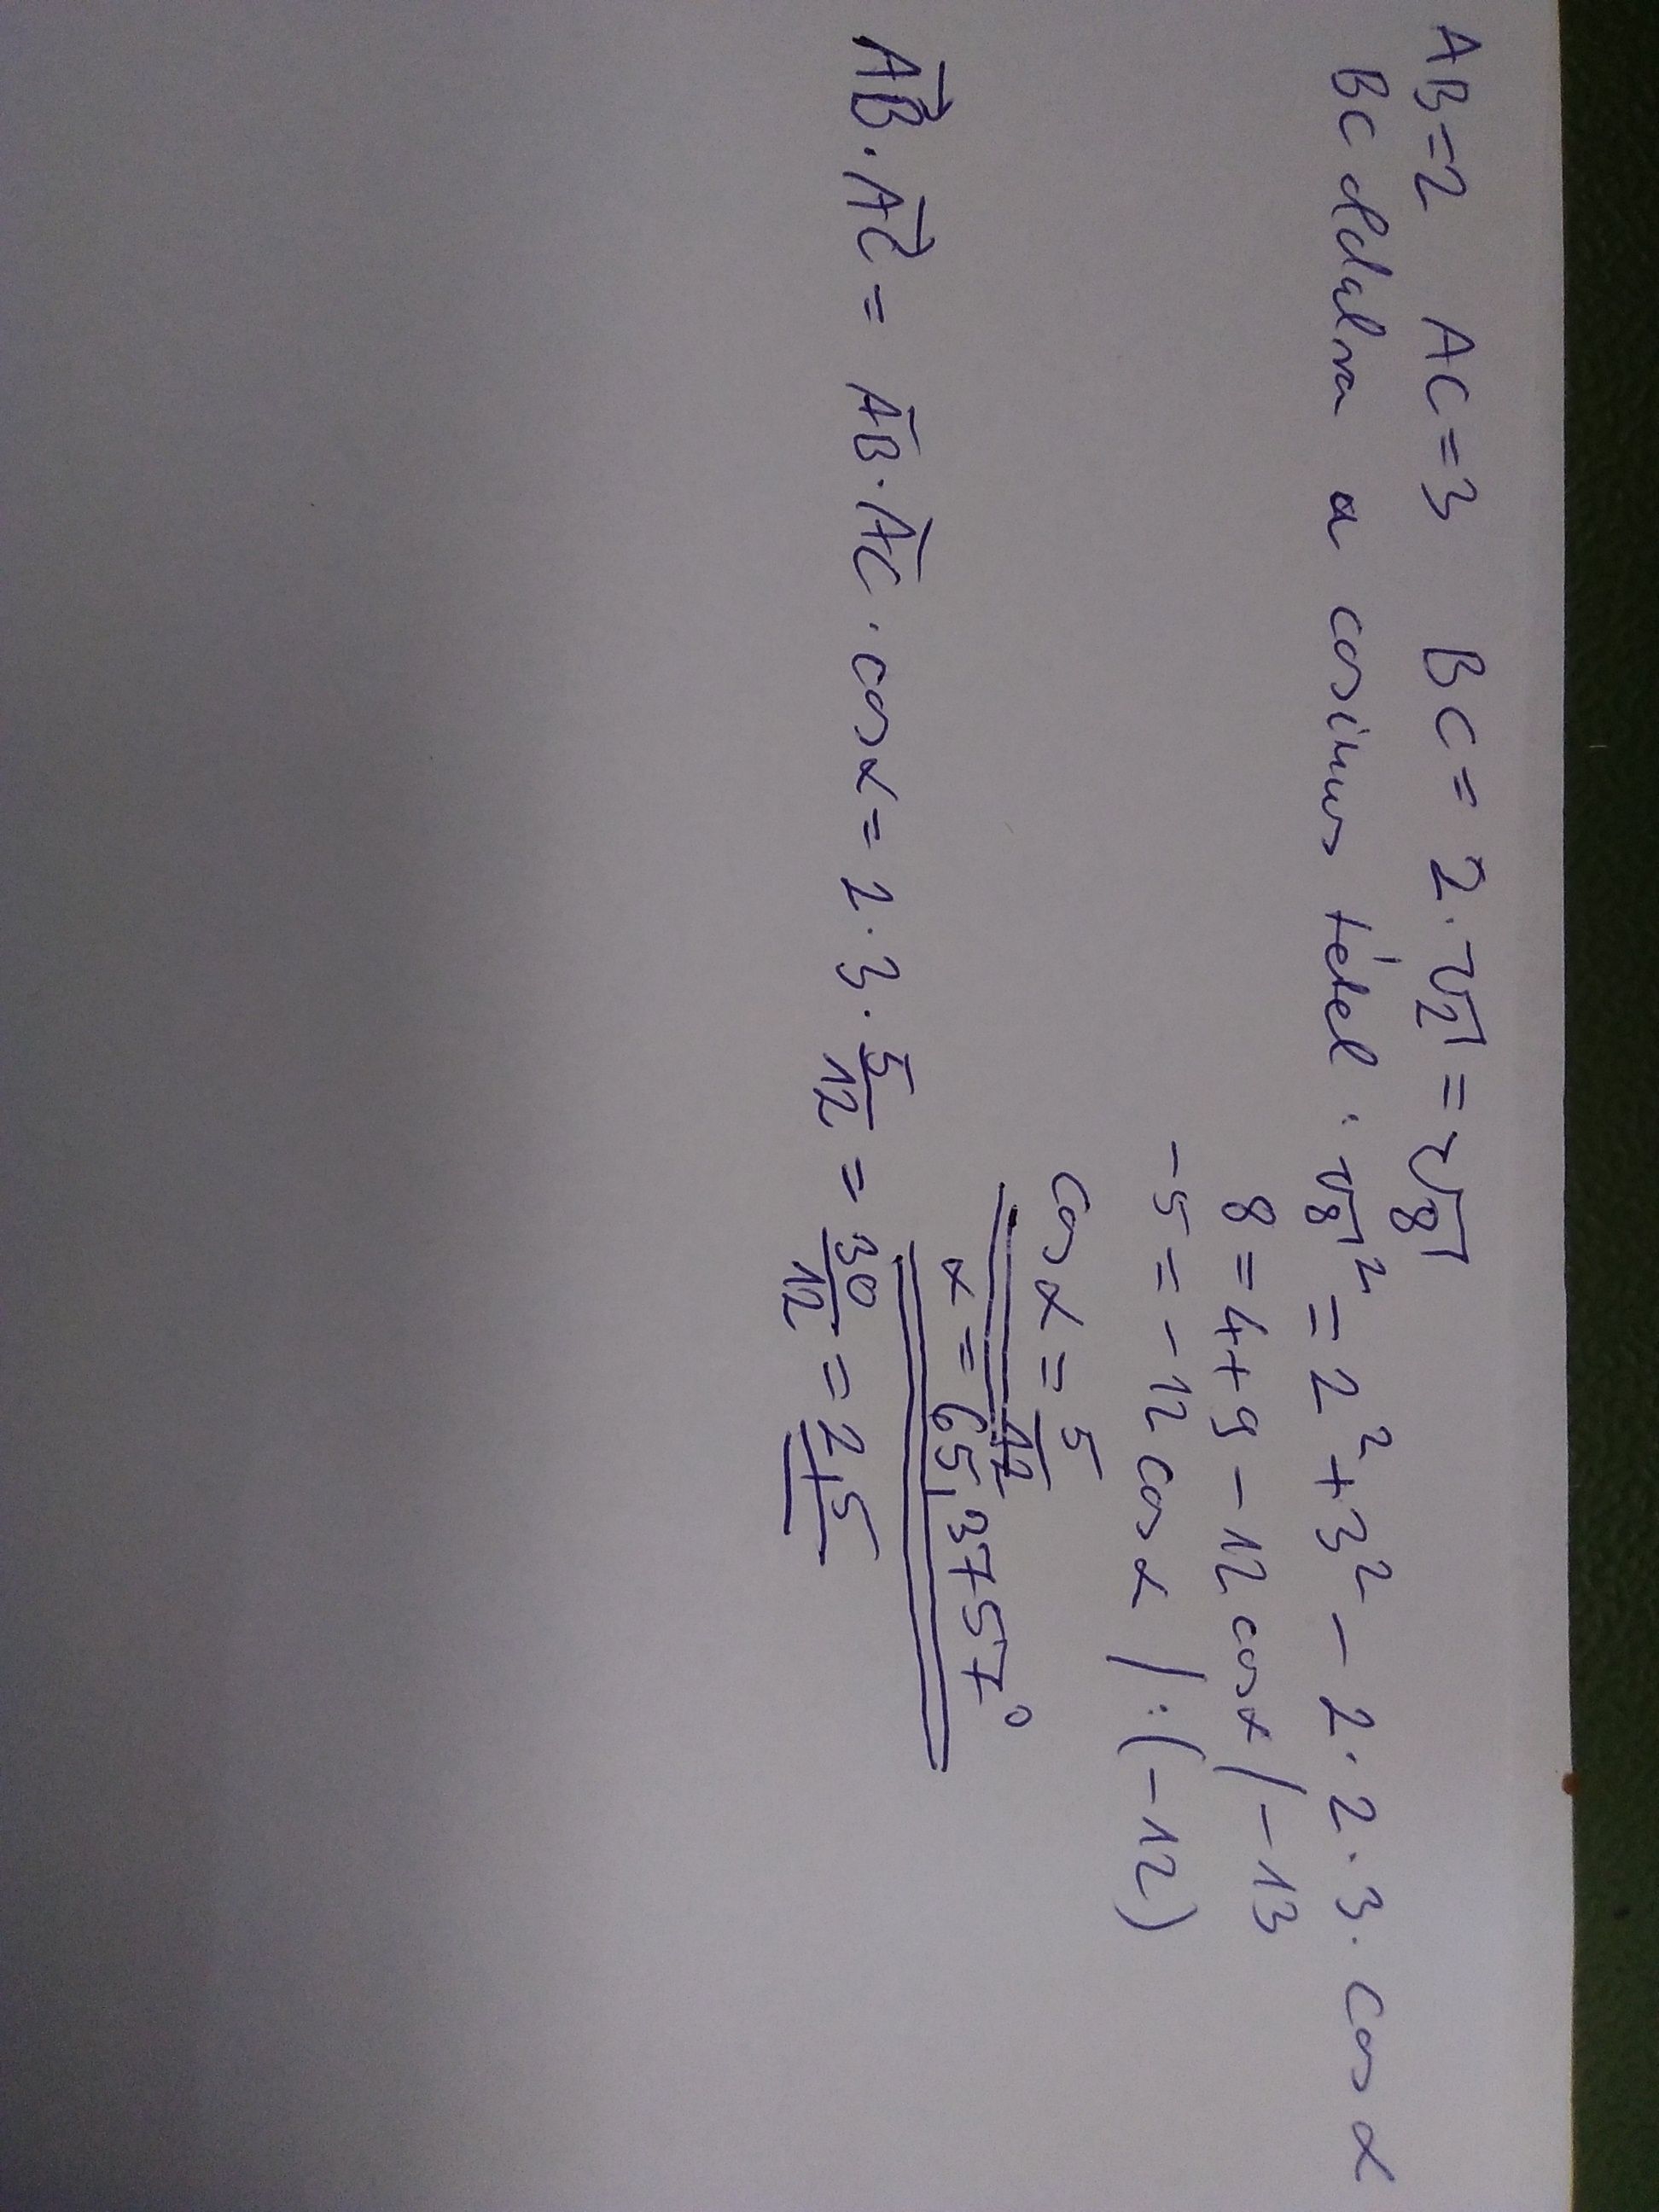 AB=2 AC=3 BC= 2·√2 = √8
BC oldalra a cosinus tétel: √8² = 2² + 3² - 2·2·3·cos α
8 = 4+9 - 12 cos α /-13
-5 = -12 cos α /:(-12)
cos α = 5/12
α = 65,3757°
AB·AC = AB·AC·cos α = 2·3·5/12 = 30/12 = 2,5